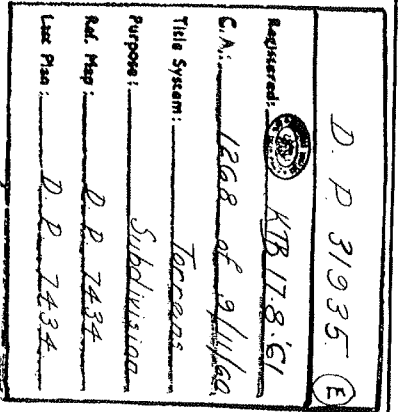 D.P. 31935 (E)
Registered: KTB 17.8.'61
C.A.: 1268 of 9/11/60
Title System: Torrens
Purpose: Subdivision
Ref. Map: D.P. 7434
Last Plan: D.P. 7434